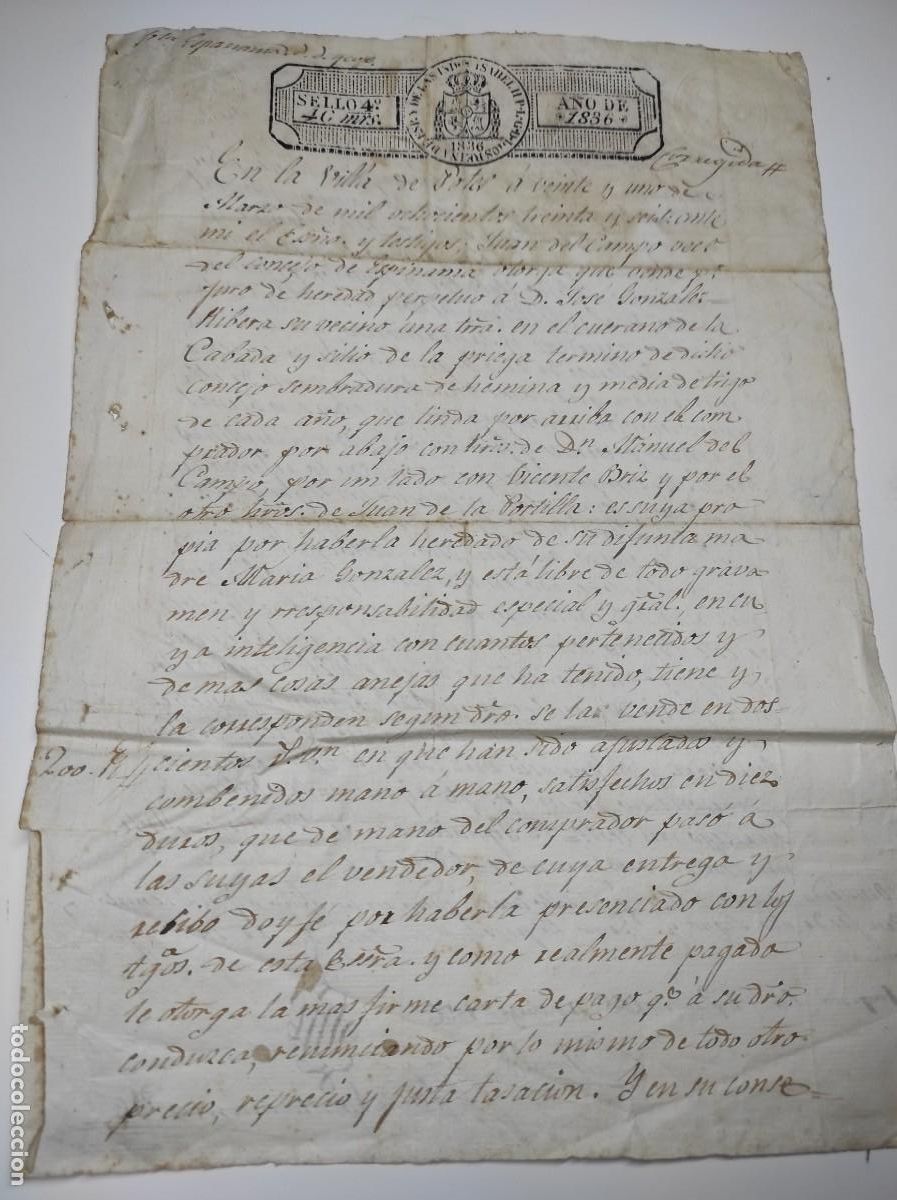 SELLO 4º
40 mrs.
1836
AÑO DE
1836
Corregida
En la Villa de Potes á veinte y uno de
Marzo de mil ochocientos treinta y seis: ante
mi el Esño. y testigos; Juan del Campo vecº
del concejo de Espinama otorga que vende pr
juro de heredad perpetuo á D. José Gonzalez
Ribera su vecino una trrã. en el cuerano de la
Cabada y sitio de la priega termino de dicho
concejo sembradura de hemina y media de trigo
de cada año, que linda por arriba con el com
prador por abajo con trrãs. de Dn Manuel del
Campo, por un lado con Vicente Briz y por el
otro hrõs. de Juan de la Portilla: es suya pro
pia por haberla heredado de su difunta ma
dre Maria Gonzalez, y está libre de todo grava
men y rresponsabilidad especial y grãl. en cu
ya inteligencia con cuantos pertenecidos y
demas cosas anejas que ha tenido, tiene y
la corresponden segun drõ. se la vende en dos-
200. R cientos rs. vn en que han sido ajustados y
combenidos mano á mano, satisfechos en diez
duros, que de mano del comprador pasó á
las suyas el vendedor, de cuya entrega y
recibo doy fé por haberla presenciado con los
tgõs. de esta Esrã. y como realmente pagado
le otorga la mas firme carta de pago qe á su drõ.
conduzca, renunciando por lo mismo de todo otro
precio, reprecio y justa tasacion. Y en su conse=
todocoleccion.net